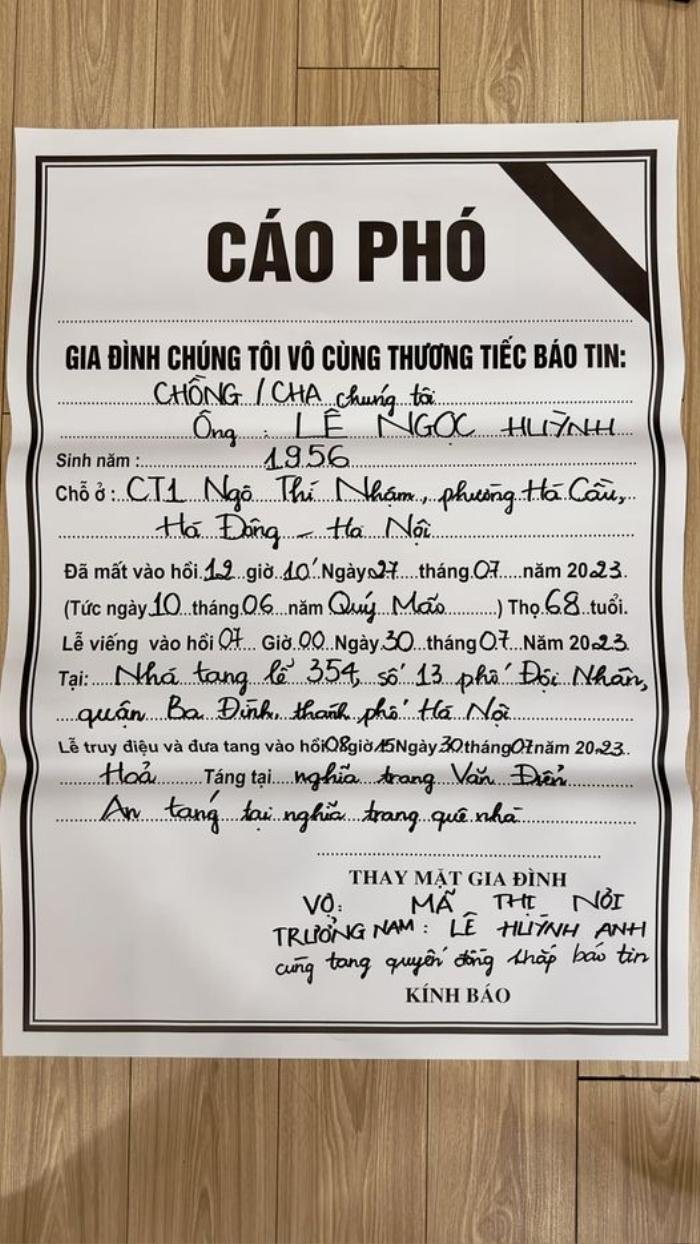 CÁO PHÓ
GIA ĐÌNH CHÚNG TÔI VÔ CÙNG THƯƠNG TIẾC BÁO TIN:
CHỒNG / CHA chúng tôi
Ông : LÊ NGỌC HUỲNH
Sinh năm : 1956
Chỗ ở : CT1 Ngô Thì Nhậm, phường Hà Cầu,
Hà Đông - Hà Nội
Đã mất vào hồi 12 giờ 10' Ngày 27 tháng 07 năm 2023.
(Tức ngày 10 tháng 06 năm Quý Mão ) Thọ 68 tuổi.
Lễ viếng vào hồi 07 Giờ 00 Ngày 30 tháng 07 Năm 2023
Tại: Nhà tang lễ 354, số 13 phố Đội Nhân,
quận Ba Đình, thành phố Hà Nội
Lễ truy điệu và đưa tang vào hồi 08 giờ 15 Ngày 30 tháng 07 năm 2023.
Hoả Táng tại nghĩa trang Văn Điển
An táng tại nghĩa trang quê nhà
THAY MẶT GIA ĐÌNH
VỢ: MÃ THỊ NÒI
TRƯỞNG NAM : LÊ HUỲNH ANH
cùng tang quyến đồng khấp báo tin
KÍNH BÁO